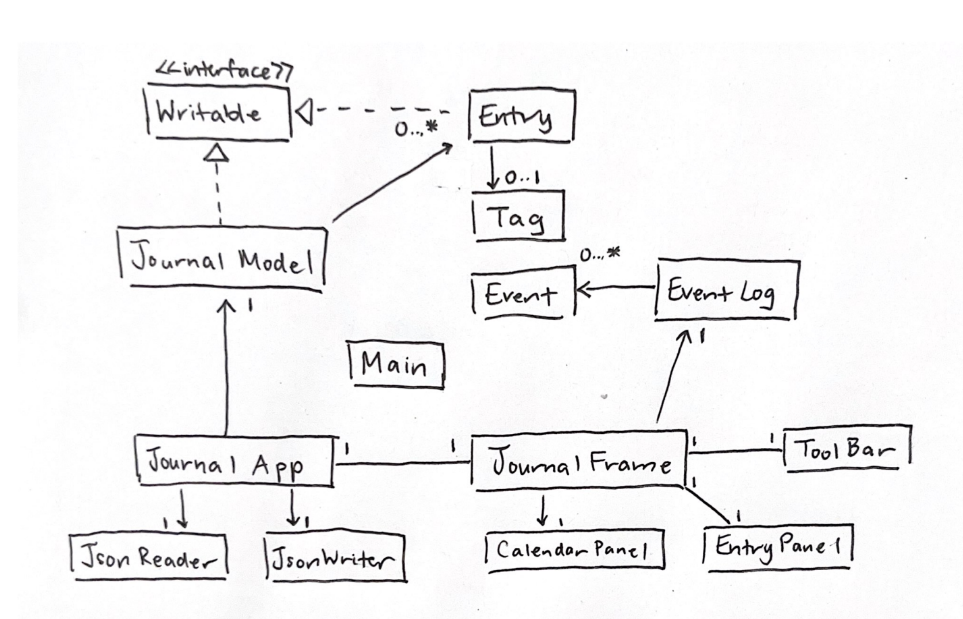 <<interface>>
Writable
0...*
Entry
0..1
Tag
Journal Model
0...*
Event
Event Log
1
Main
1
Journal App
1
1
Journal Frame
1
1
Tool Bar
1
1
Json Reader
1
Json Writer
1
Calendar Panel
1
Entry Panel